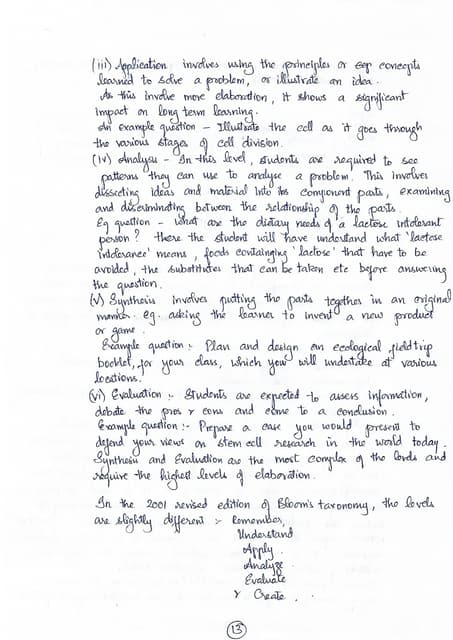 (iii) Application involves using the principles or concepts
learned to solve a problem, or illustrate an idea.
As this involve more elaboration, it shows a significant
impact on long term learning.
An example question – Illustrate the cell as it goes through
the various stages of cell division.
(iv) Analysis – In this level, students are required to see
patterns they can use to analyse a problem. This involves
dissecting ideas and material into its component parts, examining
and discriminating between the relationship of the parts.
Eg question – what are the dietary needs of a lactose intolerant
person? there the student will have understand what 'lactose
intolerance' means, foods containging 'lactose' that have to be
avoided, the substitutes that can be taken etc before answering
the question.
(v) Synthesis involves putting the parts together in an original
manner. eg. asking the learner to invent a new product
or game.
Example question :- Plan and design an ecological fieldtrip
booklet, for your class, which you will undertake at various
locations.
(vi) Evaluation :- Students are expected to assess information,
debate the pros & cons and come to a conclusion.
Example question :- Prepare a case you would present to
defend your views on stem cell research in the world today.
Synthesis and Evaluation are the most complex of the levels and
require the highest levels of elaboration.
In the 2001 revised edition of Bloom's taxonomy, the levels
are slightly different :- Remember,
Understand
Apply.
Analyze
Evaluate
& Create.
13